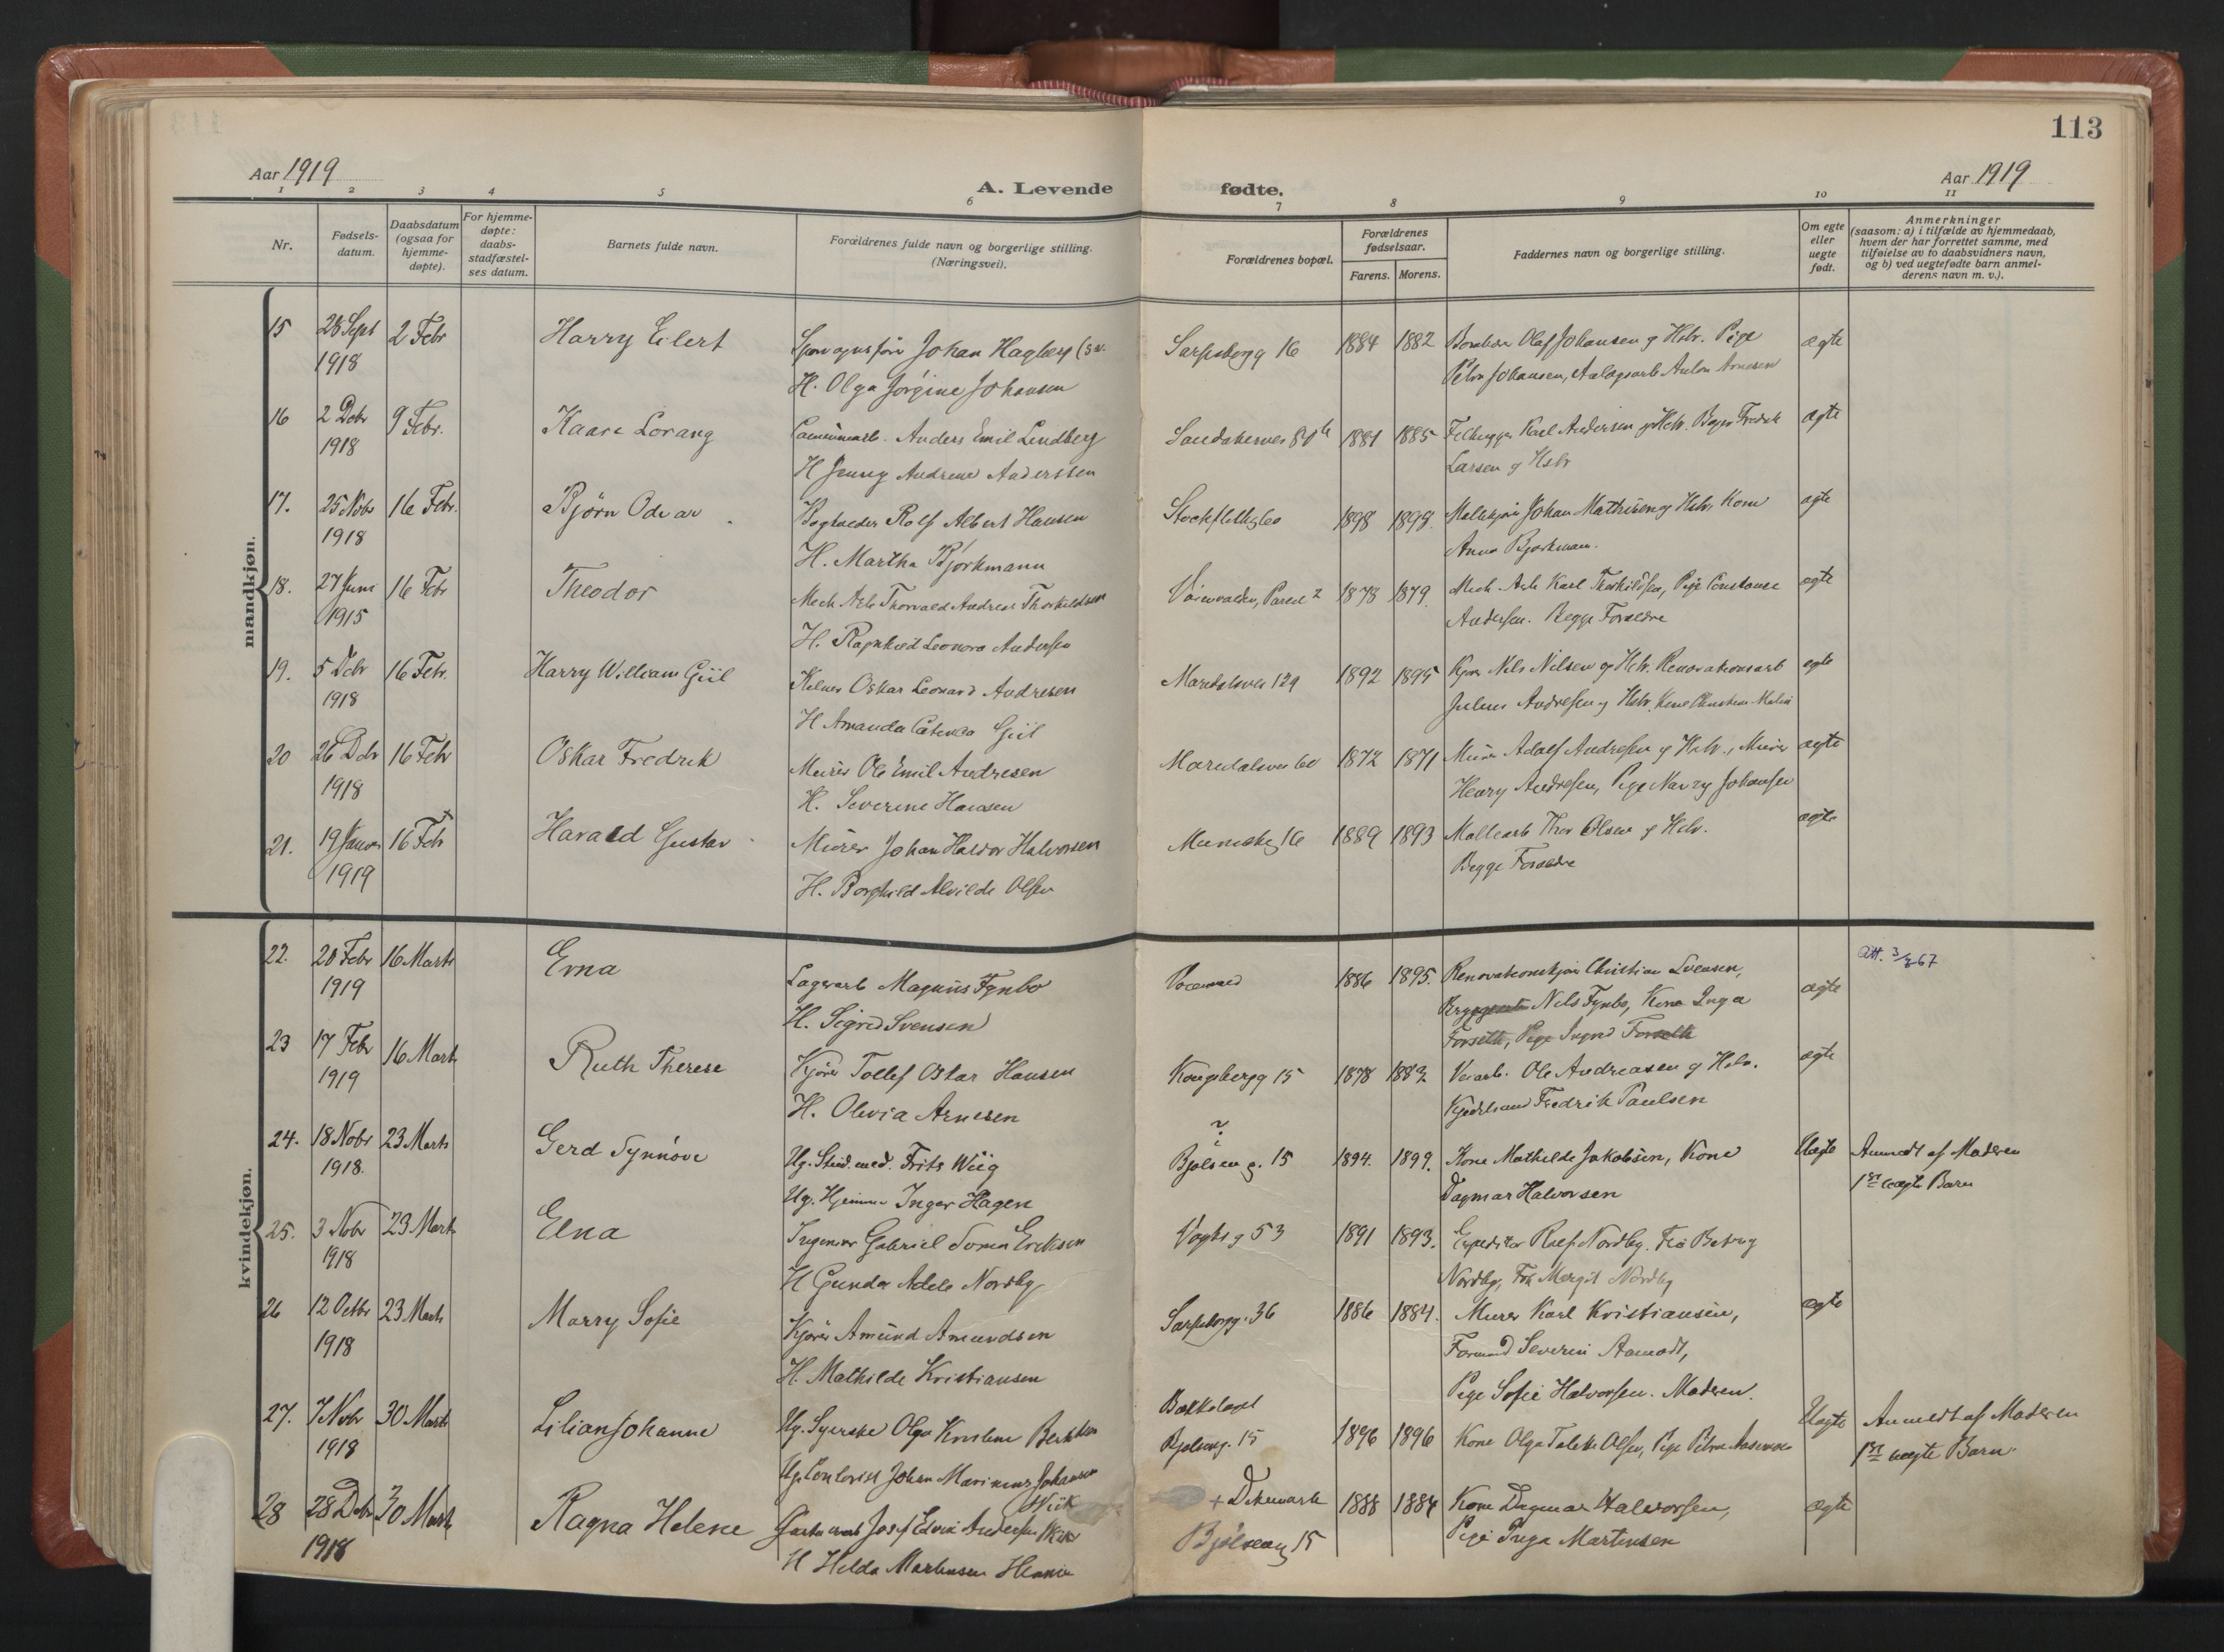 113
Aar 1919
A. Levende fødte.
Aar 1919
1 2 3 4 5 6 7 8 9 10 11
Nr.
Fødsels-
datum.
Daabsdatum
(ogsaa for
hjemme-
døpte).
For hjemme-
døpte:
daabs-
stadfæstel-
ses datum.
Barnets fulde navn.
Forældrenes fulde navn og borgerlige stilling.
(Næringsvei).
Forældrenes bopæl.
Forældrenes
fødselsaar.
Farens. Morens.
Faddernes navn og borgerlige stilling.
Om egte
eller
uegte
født.
Anmerkninger
(saasom: a) i tilfælde av hjemmedaab,
hvem der har forrettet samme, med
tilføielse av to daabsvidners navn,
og b) ved uegtefødte barn anmel-
derens navn m. v.).
mandkjøn.
15 28 Sept 2 Febr Harry Eilert Johan Hagberg Sarpsborgg 16 1884 1882 Olaf Johansen og Hstr. Pige ægte
1918 H. Olga Jørgine Johansen Petra Johansen, Anton Arnesen
16 2 Debr 9 Febr. Kaare Lorang Anders Emil Lindberg 1881 1885 Karl Andersen og Hstr. Fredrik ægte
1918 H Jenny Andrene Anderssen Larsen og Hstr
17. 25 Nobr 16 Febr. Bjørn Odvar Bogholder Rolf Albert Hansen 1898 1898. Johan Mathisen og Hstr, Kone ægte
1918 H. Martha Bjørkmann Anna Bjørkmann.
18. 27 Juni 16 Febr Theodor Mek Arb Thorvald Andreas Thorkildsen Parcel 2 1878 1879. Mek. Arb Karl Thorkildsen, Pige Constance ægte
1915 H. Ragnhild Leonora Andersen Andersen. Begge Forældre
19. 5 Debr 16 Febr. Harry William Giil Kelner Oskar Leonard Andresen Maridalsvei 129 1892 1895 Kjører Nils Nilsen og Hstr. Renovationsarb ægte
1918 H Amanda Giil Julius Andresen og Hstr.
20 26 Debr 16 Febr Oskar Fredrik Murer Ole Emil Andresen Maridalsvei 60 1872 1871 Murer Adolf Andresen og Hstr., Murer ægte
1918 H. Severine Hansen Henry Andresen, Pige Nanzy Johansen
21. 19 Januar 16 Febr Harald Gustav Murer Johan Haldor Halvorsen 16 1889 1893 Thor Olsen og Hstr. ægte
1919 H. Borghild Alvilde Olsen Begge Forældre
kvindekjøn.
22. 20 Febr 16 Marts Erna Lagerarb Magnus Fynbo 1886 1895. Renovationskjører Christian Svensen, ægte Att. 3/8 67
1919 H. Sigrid Svensen Nils Fynbo, Kone Inga
Forseth, Pige Sigrid Forseth
23 17 Febr 16 Marts Ruth Therese Kjører Tollef Oskar Hansen Kongsbergg 15 1878 1882 Veiarb. Ole Andreasen og Hstr. ægte
1919 H. Olevia Arnesen Fredrik Paulsen
24. 18 Nobr 23 Marts Gerd Synnøve Ug. Stud. med. Frits Wiig ? Bjølseng. 15 1894. 1899. Kone Mathilde Jakobsen, Kone Uægte Anmeldt af Moderen
1918. Ug. Hjemme Inger Hagen Dagmar Halvorsen 1ste uægte Barn
25. 3 Nobr 23 Marts Elna Ingeniør Gabriel Eriksen Vogts g 53 1891 1893. Expeditør Rolf Nordby. Frk Betzy
1918 H Gunda Adele Nordby Nordby, Frk Margit Nordby
26 12 Octbr 23 Marts Marry Sofie Kjører Amund Amundsen Sarpsborgg. 36 1886 1884. Murer Karl Kristiansen, ægte
1918 H. Mathilde Kristiansen Formand Severin Aamodt,
Pige Sofie Halvorsen. Moderen.
27. 7 Nobr 30 Marts Lilian Johanne Ug. Syerske Olga Bækkelaget 1896 1896 Kone Olga Olsen, Pige Petra Uægte Anmeldt af Moderen
1918 Ug. Johan Marinius Johansen Bjølseng. 15 1ste uægte Barn
28 28 Debr 30 Marts Ragna Helene Josef Edvin Andersen Wiik + Denmark 1888 1884 Kone Dagmar Halvorsen, ægte
1918 H Hilda Martinsen Bjølseng 15 Pige Inga Martinsen